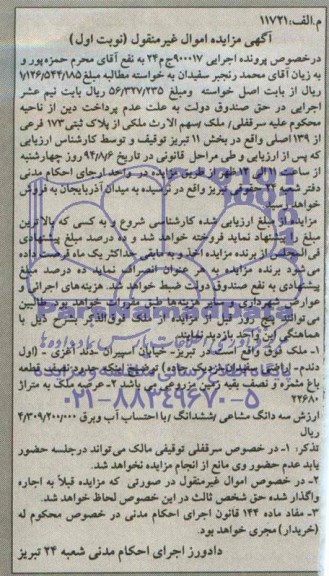 م.الف:۱۱۷۲۱
آگهی مزایده اموال غیرمنقول (نوبت اول)
درخصوص پرونده اجرایی ۹۰۰۰۱۷ج م۲۴ به نفع آقای محرم حمزه پور و
به زیان آقای محمد رنجبر سفیدان به خواسته مطالبه مبلغ ۱/۱۲۶/۵۴۴/۱۸۵
ریال از بابت اصل خواسته ومبلغ ۵۶/۳۲۷/۲۳۵ ریال بابت نیم عشر
اجرایی در حق صندوق دولت به علت عدم پرداخت دین از ناحیه
محکوم علیه سرقفلی/ ملک /سهم الارث ملکی از پلاک ثبتی ۱۷۳ فرعی
از ۱۳۹ اصلی واقع در بخش ۱۱ تبریز توقیف و توسط کارشناس ارزیابی
که پس از ارزیابی و طی مراحل قانونی در تاریخ ۹۴/۸/۶ روز چهارشنبه
از ساعت الی ظهر از طریق مزایده در واحد اجرای احکام مدنی
دفتر شعبه ۲۴ حقوقی تبریز واقع در نرسیده به میدان آذربایجان به فروش
خواهد رسید.
مزایده از مبلغ ارزیابی شده کارشناسی شروع و به کسی که بالاترین
مبلغ را پیشنهاد نماید فروخته خواهد شد و ده درصد مبلغ پیشنهادی
فی المجلس از برنده مزایده اخذ و به مابقی حداکثر یک ماه فرصت داده
می شود برنده مزایده به هر عنوان انصراف نماید ده درصد مبلغ
پیشنهادی به نفع صندوق دولت ضبط خواهد شد. هزینه های اجرایی از
عوارض شهرداری و سایر هزینه ها طبق مقررات خواهد بود. طالبین
می توانند پنج روز قبل از مزایده از ملک فوق الذکر بشرح ذیل با
هماهنگی این واحد بازدید نمایند.
۱- ملک فوق واقع است در تبریز- خیابان اسپیران
باغ مثمره و نصف بقیه زمین مزروعی می باشد ۲- عرصه ملک به متراژ
۲۲۶۸۰
ارزش سه دانگ مشاعی /ششدانگ /با احتساب آب وبرق ۴/۳۰۹/۲۰۰/۰۰۰
ریال
تذکر: ۱- در خصوص سرقفلی توقیفی مالک می تواند درجلسه حضور
یابد عدم حضور وی مانع از انجام مزایده نخواهد شد.
۲- در خصوص اموال غیرمنقول در صورتی که مزایده قبلا به اجاره
واگذار شده حق شخص ثالث در این خصوص لحاظ خواهد شد.
۳- مفاد ماده ۱۴۴ قانون اجرای احکام مدنی در خصوص محکوم له
(خریدار) مجری خواهد بود.
دادورز اجرای احکام مدنی شعبه ۲۴ تبریز
ParsNamadData
۰۲۱-۸۸۳۴۹۶۷۰-۵